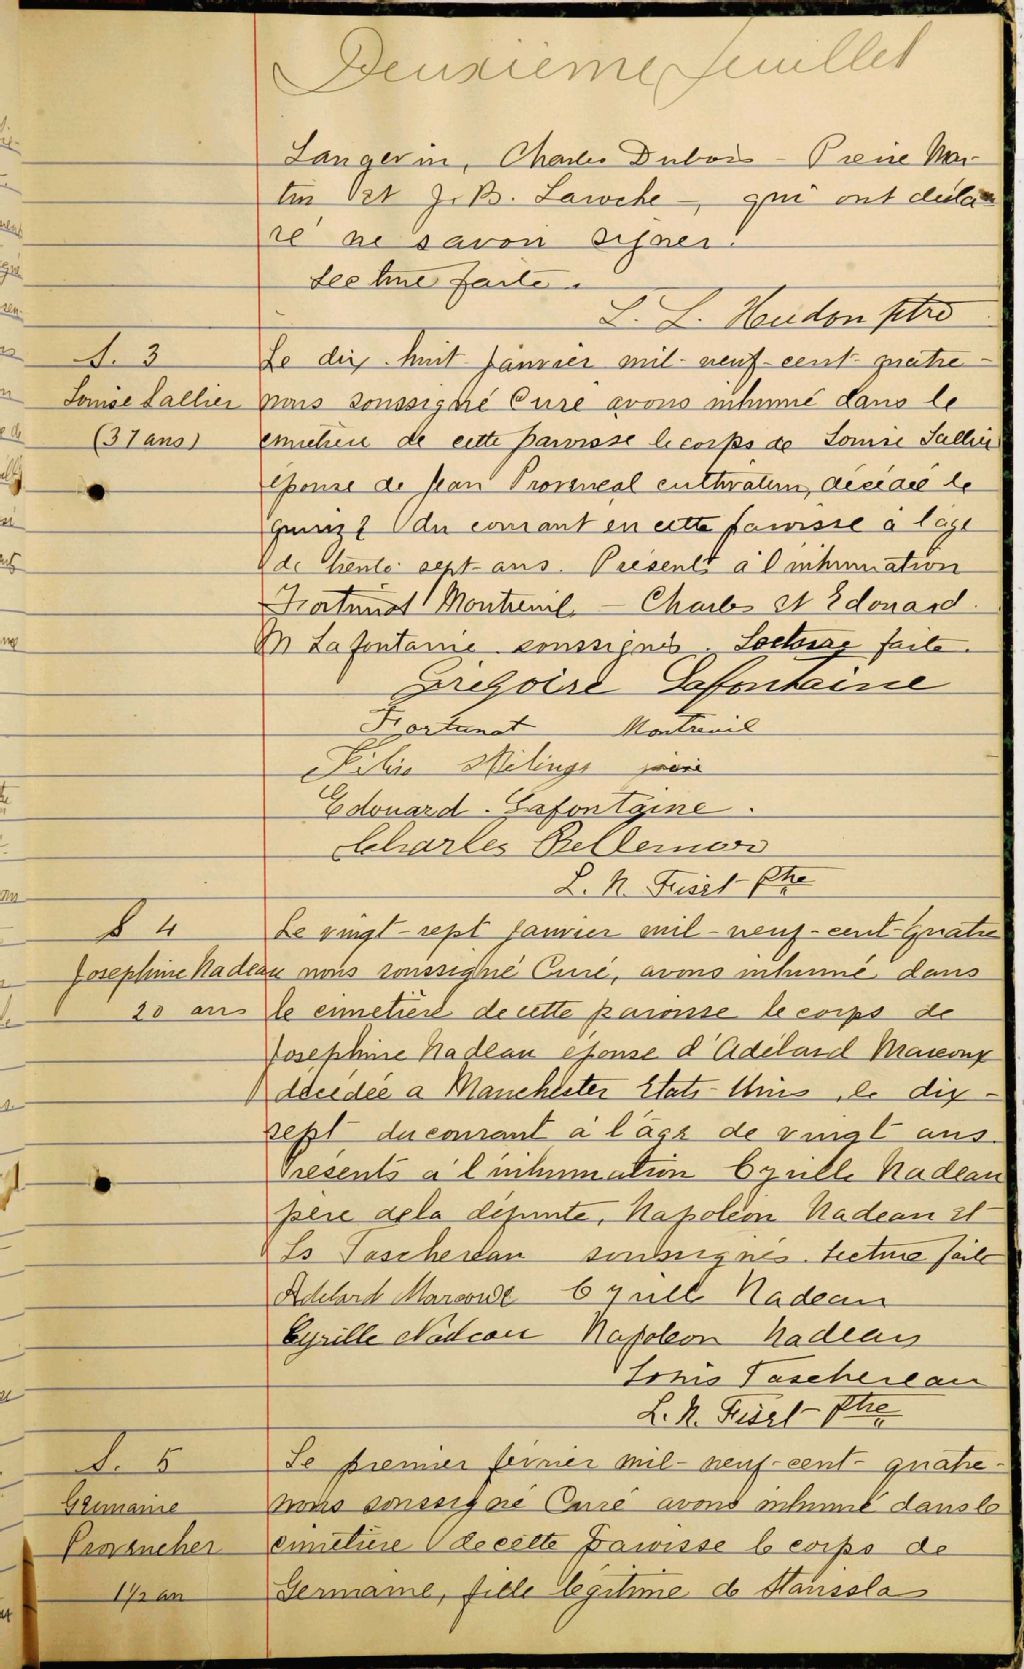 Deuxième feuillet
Langevin, Charles Dubois - Pierre Mar-
tin et J. B. Laroche -, qui ont décla-
ré ne savoir signer.
Lecture faite.
L. L. Hudon ptre
S. 3
Louise Lallier
(37 ans)
Le dix-huit janvier mil-neuf-cent-quatre-
nous soussigné Curé avons inhumé dans le
cimetière de cette paroisse le corps de Louise Lallier
épouse de Jean Provencal cultivateur, décédée le
quinze du courant en cette paroisse à l'âge
de trente-sept-ans. Présents à l'inhumation
Fortunat Montreuil - Charles et Edouard
Lafontaine soussignés. Lecture faite.
Grégoire Lafontaine
Fortunat Montreuil
Edouard. Lafontaine.
Charles Bellemare
L. N. Fiset Ptre
S 4
Josephine Nadeau
20 ans
Le vingt-sept janvier mil-neuf-cent-quatre
nous soussigné Curé, avons inhumé dans
le cimetière de cette paroisse le corps de
Josephine Nadeau épouse d'Adélard Marcoux
décédée a Manchester Etats-Unis, le dix-
sept du courant à l'âge de vingt ans.
Présents à l'inhumation Cyrille Nadeau
père de la défunte, Napoléon Nadeau et
Ls Taschereau soussignés. Lecture faite
Adelard Marcoux Cyrille Nadeau
Cyrille Nadeau Napoleon Nadeau
Louis Taschereau
L. N. Fiset Ptre
S. 5
Germaine
Provencher
1 1/2 an
Le premier février mil-neuf-cent-quatre-
nous soussigné Curé avons inhumé dans le
cimetière de cette paroisse le corps de
Germaine, fille légitime de Stanislas